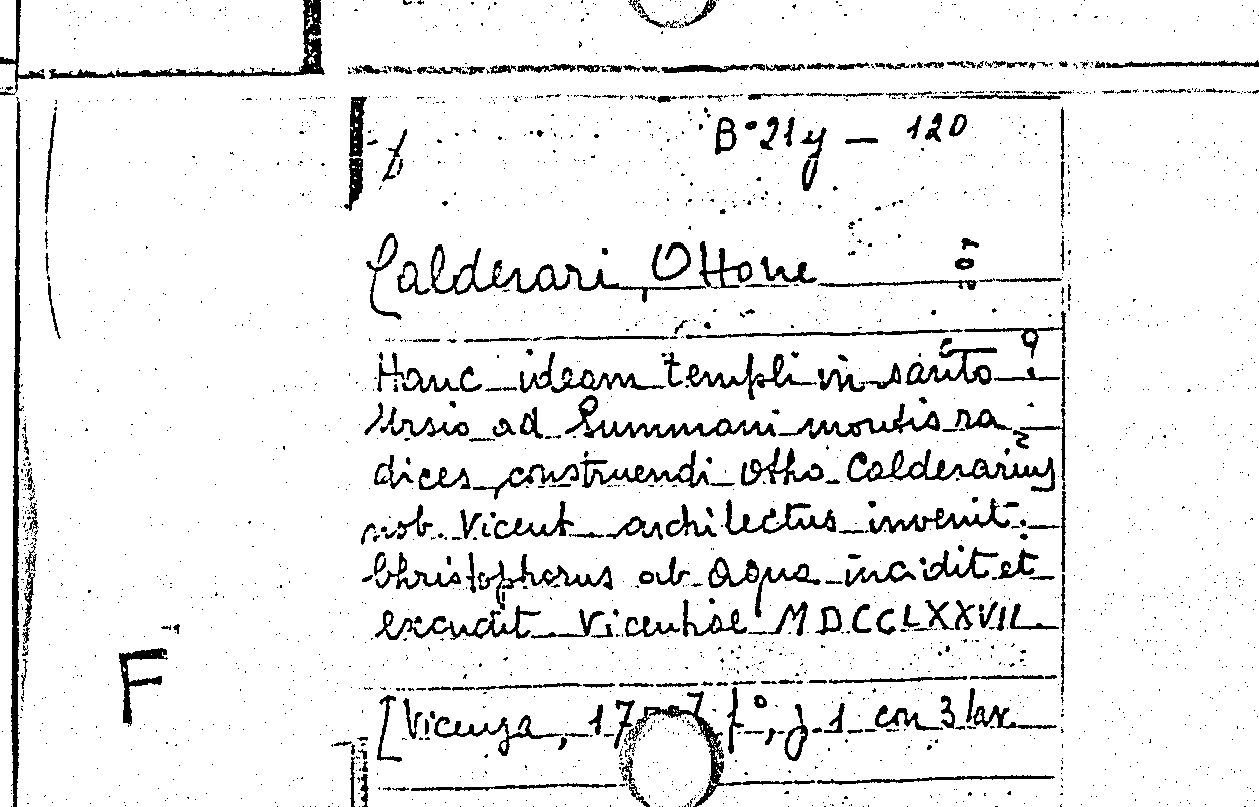 B°21y — 120
Calderari, Ottone
Hanc ideam templi in santo
Ursio ad Summani montis ra
dices, construendi Otho Calderarius
nob. Vicent. architectus invenit.
Christophorus ab Aqua incidit et
excudit. Vicentiae MDCCLXXVII.
F
[Vicenza, 17 f°, j. 1 con 3 lav.